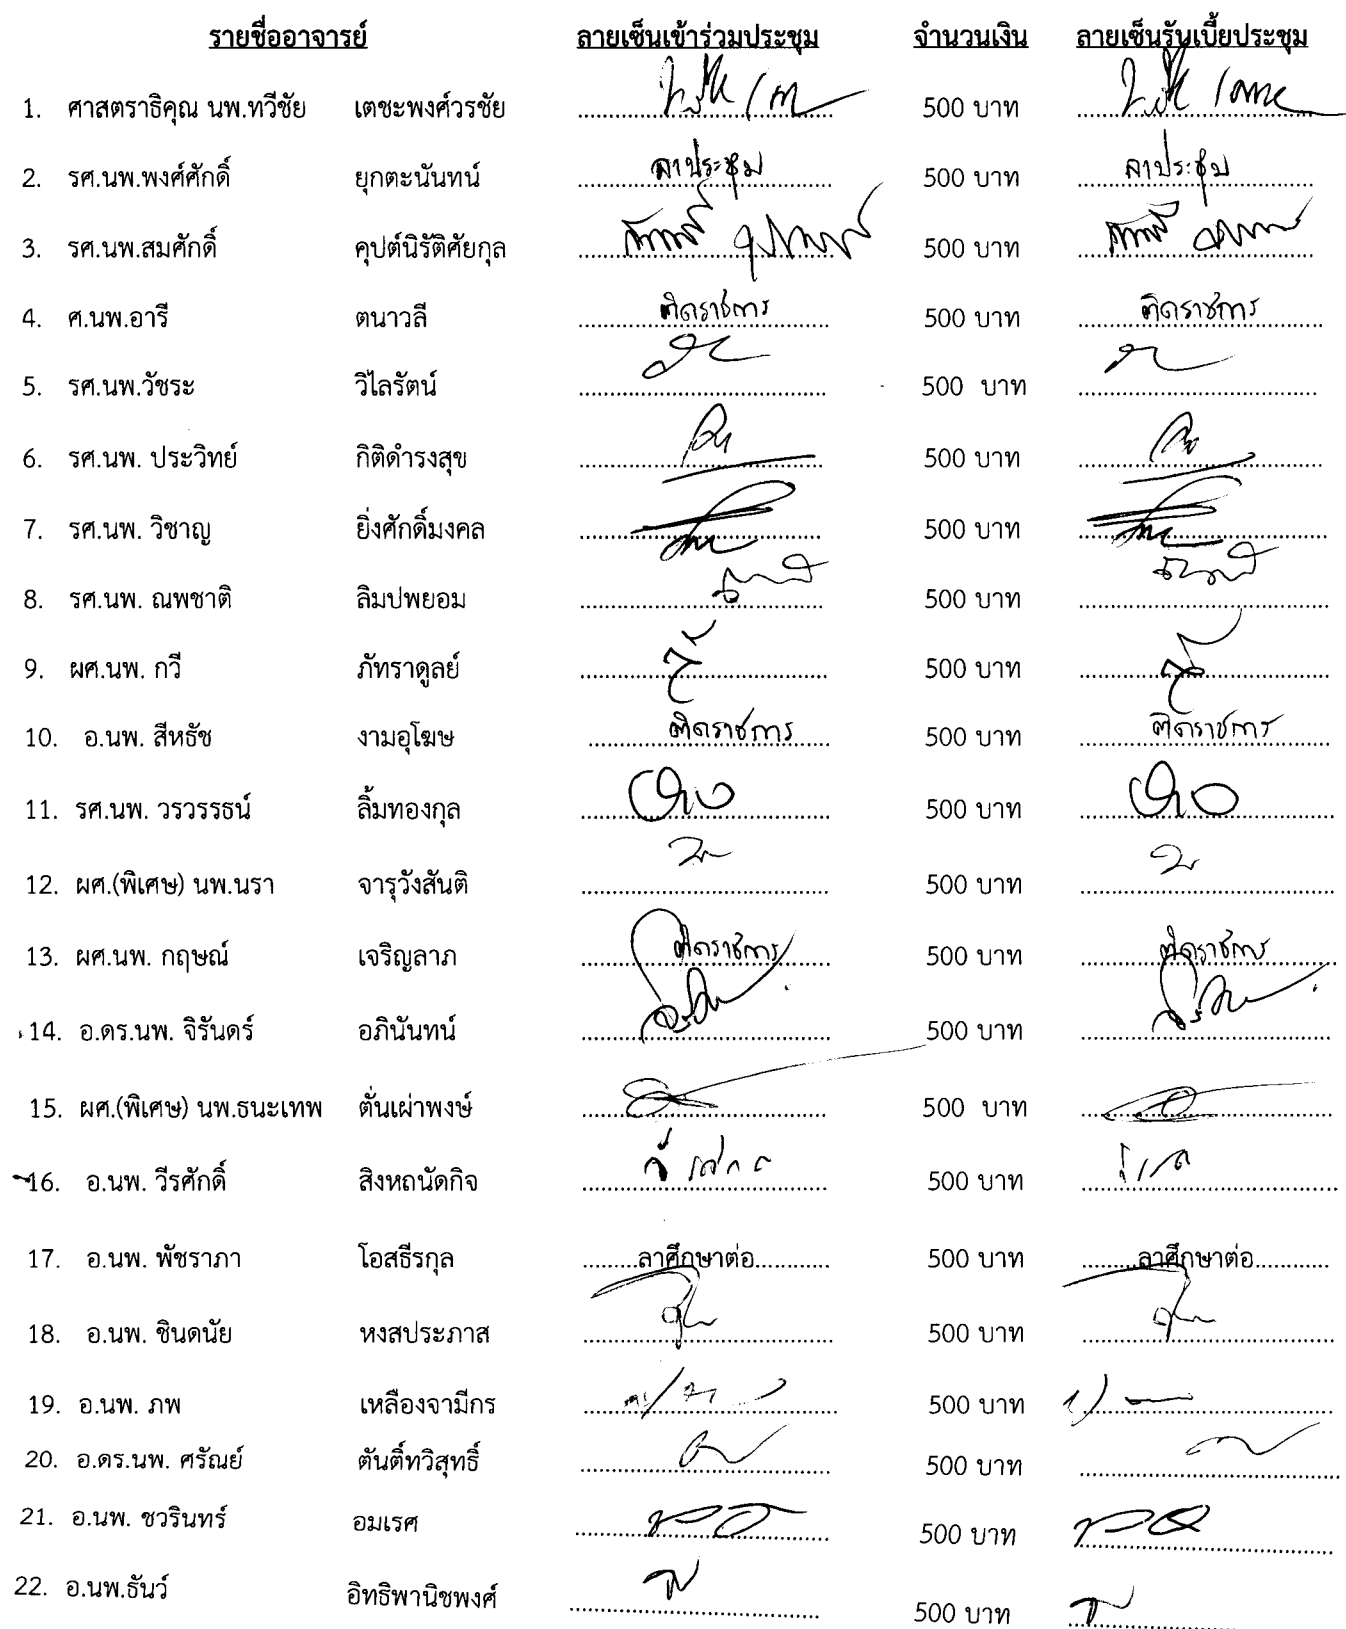 รายชื่ออาจารย์ ลายเซ็นเข้าร่วมประชุม จำนวนเงิน ลายเซ็นรับเบี้ยประชุม
1. ศาสตราธิคุณ นพ.ทวีชัย เตชะพงศ์วรชัย 500 บาท
2. รศ.นพ.พงศ์ศักดิ์ ยุกตะนันทน์ ลาประชุม 500 บาท ลาประชุม
3. รศ.นพ.สมศักดิ์ คุปต์นิรัติศัยกุล 500 บาท
4. ศ.นพ.อารี ตนาวลี ติดราชการ 500 บาท ติดราชการ
5. รศ.นพ.วัชระ วิไลรัตน์ 500 บาท
6. รศ.นพ. ประวิทย์ กิติดำรงสุข 500 บาท
7. รศ.นพ. วิชาญ ยิ่งศักดิ์มงคล 500 บาท
8. รศ.นพ. ณพชาติ ลิมปพยอม 500 บาท
9. ผศ.นพ. กวี ภัทราดูลย์ 500 บาท
10. อ.นพ. สีหธัช งามอุโฆษ ติดราชการ 500 บาท ติดราชการ
11. รศ.นพ. วรวรรธน์ ลิ้มทองกุล 500 บาท
12. ผศ.(พิเศษ) นพ.นรา จารุวังสันติ 500 บาท
13. ผศ.นพ. กฤษณ์ เจริญลาภ ติดราชการ 500 บาท ติดราชการ
14. อ.ดร.นพ. จิรันดร์ อภินันทน์ 500 บาท
15. ผศ.(พิเศษ) นพ.ธนะเทพ ตั่นเผ่าพงษ์ 500 บาท
16. อ.นพ. วีรศักดิ์ สิงหถนัดกิจ 500 บาท
17. อ.นพ. พัชราภา โอสธีรกุล ลาศึกษาต่อ 500 บาท ลาศึกษาต่อ
18. อ.นพ. ชินดนัย หงสประภาส 500 บาท
19. อ.นพ. ภพ เหลืองจามีกร 500 บาท
20. อ.ดร.นพ. ศรัณย์ ตันติ์ทวิสุทธิ์ 500 บาท
21. อ.นพ. ชวรินทร์ อมเรศ 500 บาท
22. อ.นพ.ธันว์ อิทธิพานิชพงศ์ 500 บาท